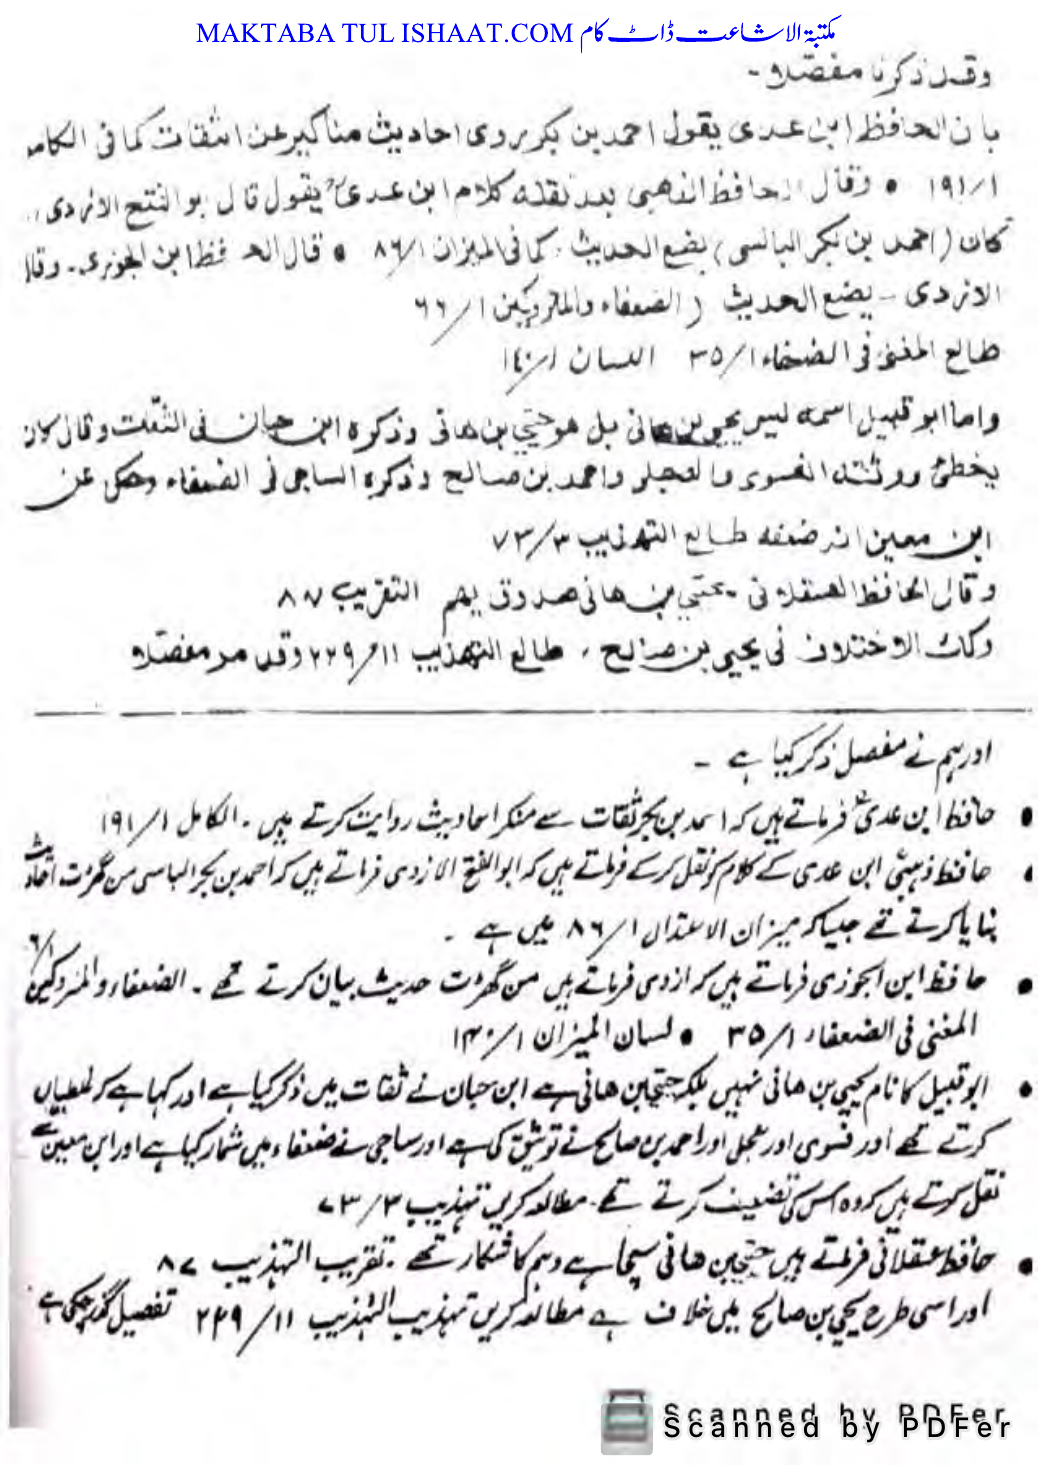 MAKTABA TUL ISHAAT.COM مکتبۃ الاشاعت ڈاٹ کام
وقد ذكرنا مفصلا -
بان الحافظ ابن عدى يقول احمد بن بكر يروى احاديث مناكير عن الثقات كما فى الكامل
١/١٩١ • وقال الحافظ الذهبى بعد نقله كلام ابن عدى يقول قال ابو الفتح الازدى
كان (احمد بن بكر البالسى) يضع الحديث . كما فى الميزان ١/٨٦ • قال الحافظ ابن الجوزى . وقال
الازدى - يضع الحديث (الضعفاء والمتروكين ١/٦٦
طالع المغنى فى الضعفاء ١/٣٥ اللسان ١/١٤٠
واما ابو قبيل اسمه ليس يحيى بن هانى بل هو حيى بن هانى وذكره ابن حبان فى الثقات وقال كان
يخطئ ووثقه الفسوى والعجلى واحمد بن صالح وذكره الساجى فى الضعفاء وحكى عن
ابن معين انه ضعفه طالع التهذيب ٣/٧٣
وقال الحافظ العسقلانى حيى بن هانى صدوق يهم التقريب ٨٧
وكذا الاختلاف فى يحيى بن صالح ، طالع التهذيب ١١/٢٢٩ وقد مر مفصلا
اور ہم نے مفصل ذکر کیا ہے -
• حافظ ابن عدیؒ فرماتے ہیں کہ احمد بن بکر ثقات سے منکر احادیث روایت کرتے ہیں . الکامل ١/١٩١
• حافظ ذہبیؒ ابن عدی کے کلام کو نقل کر کے فرماتے ہیں کہ ابو الفتح الازدی فرماتے ہیں کہ احمد بن بکر البالسی من گھڑت احادیث
بنایا کرتے تھے جیسا کہ میزان الاعتدال ١/٨٦ میں ہے .
• حافظ ابن الجوزی فرماتے ہیں کہ ازدی فرماتے ہیں من گھڑت حدیث بیان کرتے تھے . الضعفاء والمتروکین
المغنی فی الضعفاء ١/٣٥ • لسان المیزان ١/١٤٠
• ابو قبیل کا نام یحیی بن ھانی نہیں بلکہ حیی بن ھانی ہے ابن حبان نے ثقات میں ذکر کیا ہے اور کہا ہے کہ غلطیاں
کرتے تھے اور فسوی اور عجلی اور احمد بن صالح نے توثیق کی ہے اور ساجی نے ضعفاء میں شمار کیا ہے اور ابن معین سے
نقل کرتے ہیں کہ وہ اس کی تضعیف کرتے تھے . مطالعہ کریں تہذیب ٣/٧٣
• حافظ عسقلانی فرماتے ہیں حیی بن ھانی سچا ہے وہم کا شکار تھے . تقریب التہذیب ٨٧
اور اسی طرح یحیی بن صالح میں خلاف ہے مطالعہ کریں تہذیب التہذیب ١١/٢٢٩ تفصیل گزر چکی ہے
Scanned by PDFer
Scanned by PDFer